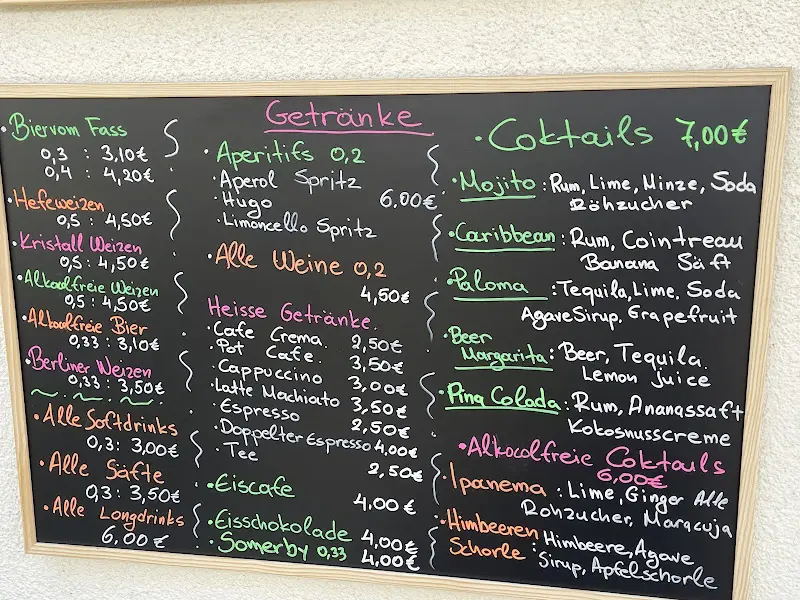 Getränke
• Biervom Fass
0,3 : 3,10€
0,4 : 4,20€
• Hefeweizen
0,5 : 4,50€
• Kristall Weizen
0,5 : 4,50€
• Alkoolfreie Weizen
0,5 : 4,50€
• Alkoolfreie Bier
0,33 : 3,10€
• Berliner Weizen
0,33 : 3,50€
• Alle Softdrinks
0,3 : 3,00€
• Alle Säfte
0,3 : 3,50€
• Alle Longdrinks
6,00€
• Aperitifs 0,2
• Aperol Spritz
• Hugo 6,00€
• Limoncello Spritz
• Alle Weine 0,2
4,50€
Heisse Getränke.
• Cafe Crema. 2,50€
• Pot Cafe. 3,50€
• Cappuccino 3,00€
• Latte Machiato 3,50€
• Espresso 2,50€
• Doppelter Espresso 4,00€
• Tee 2,50€
• Eiscafe
4,00€
• Eisschokolade 4,00€
• Somerby 0,33 4,00€
• Coktails 7,00€
• Mojito : Rum, Lime, Minze, Soda
Rohzucher
• Caribbean : Rum, Cointreau
Banana Säft
• Paloma : Tequila, Lime, Soda
Agave Sirup, Grapefruit
• Beer
Margarita : Beer, Tequila.
Lemon juice
• Pina Colada : Rum, Ananassaft
Kokosnusscreme
• Alkoolfreie Coktails
6,00€
• Ipanema : Lime, Ginger Alle
Rohzucher, Maracuja
• Himbeeren
Schorle : Himbeere, Agave
Sirup, Apfelschorle